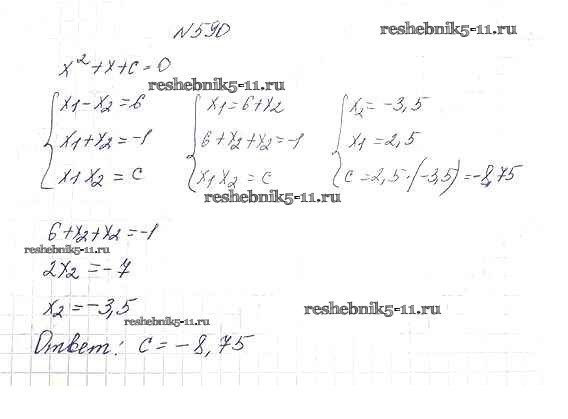 N590
reshebnik5-11.ru
x² + x + c = 0
reshebnik5-11.ru
x1 - x2 = 6
x1 + x2 = -1
x1 x2 = c
x1 = 6 + x2
6 + x2 + x2 = -1
x1 x2 = c
reshebnik5-11.ru
x2 = -3,5
x1 = 2,5
c = 2,5 · (-3,5) = -8,75
6 + x2 + x2 = -1
reshebnik5-11.ru
2x2 = -7
x2 = -3,5
reshebnik5-11.ru
reshebnik5-11.ru
Ответ: c = -8,75